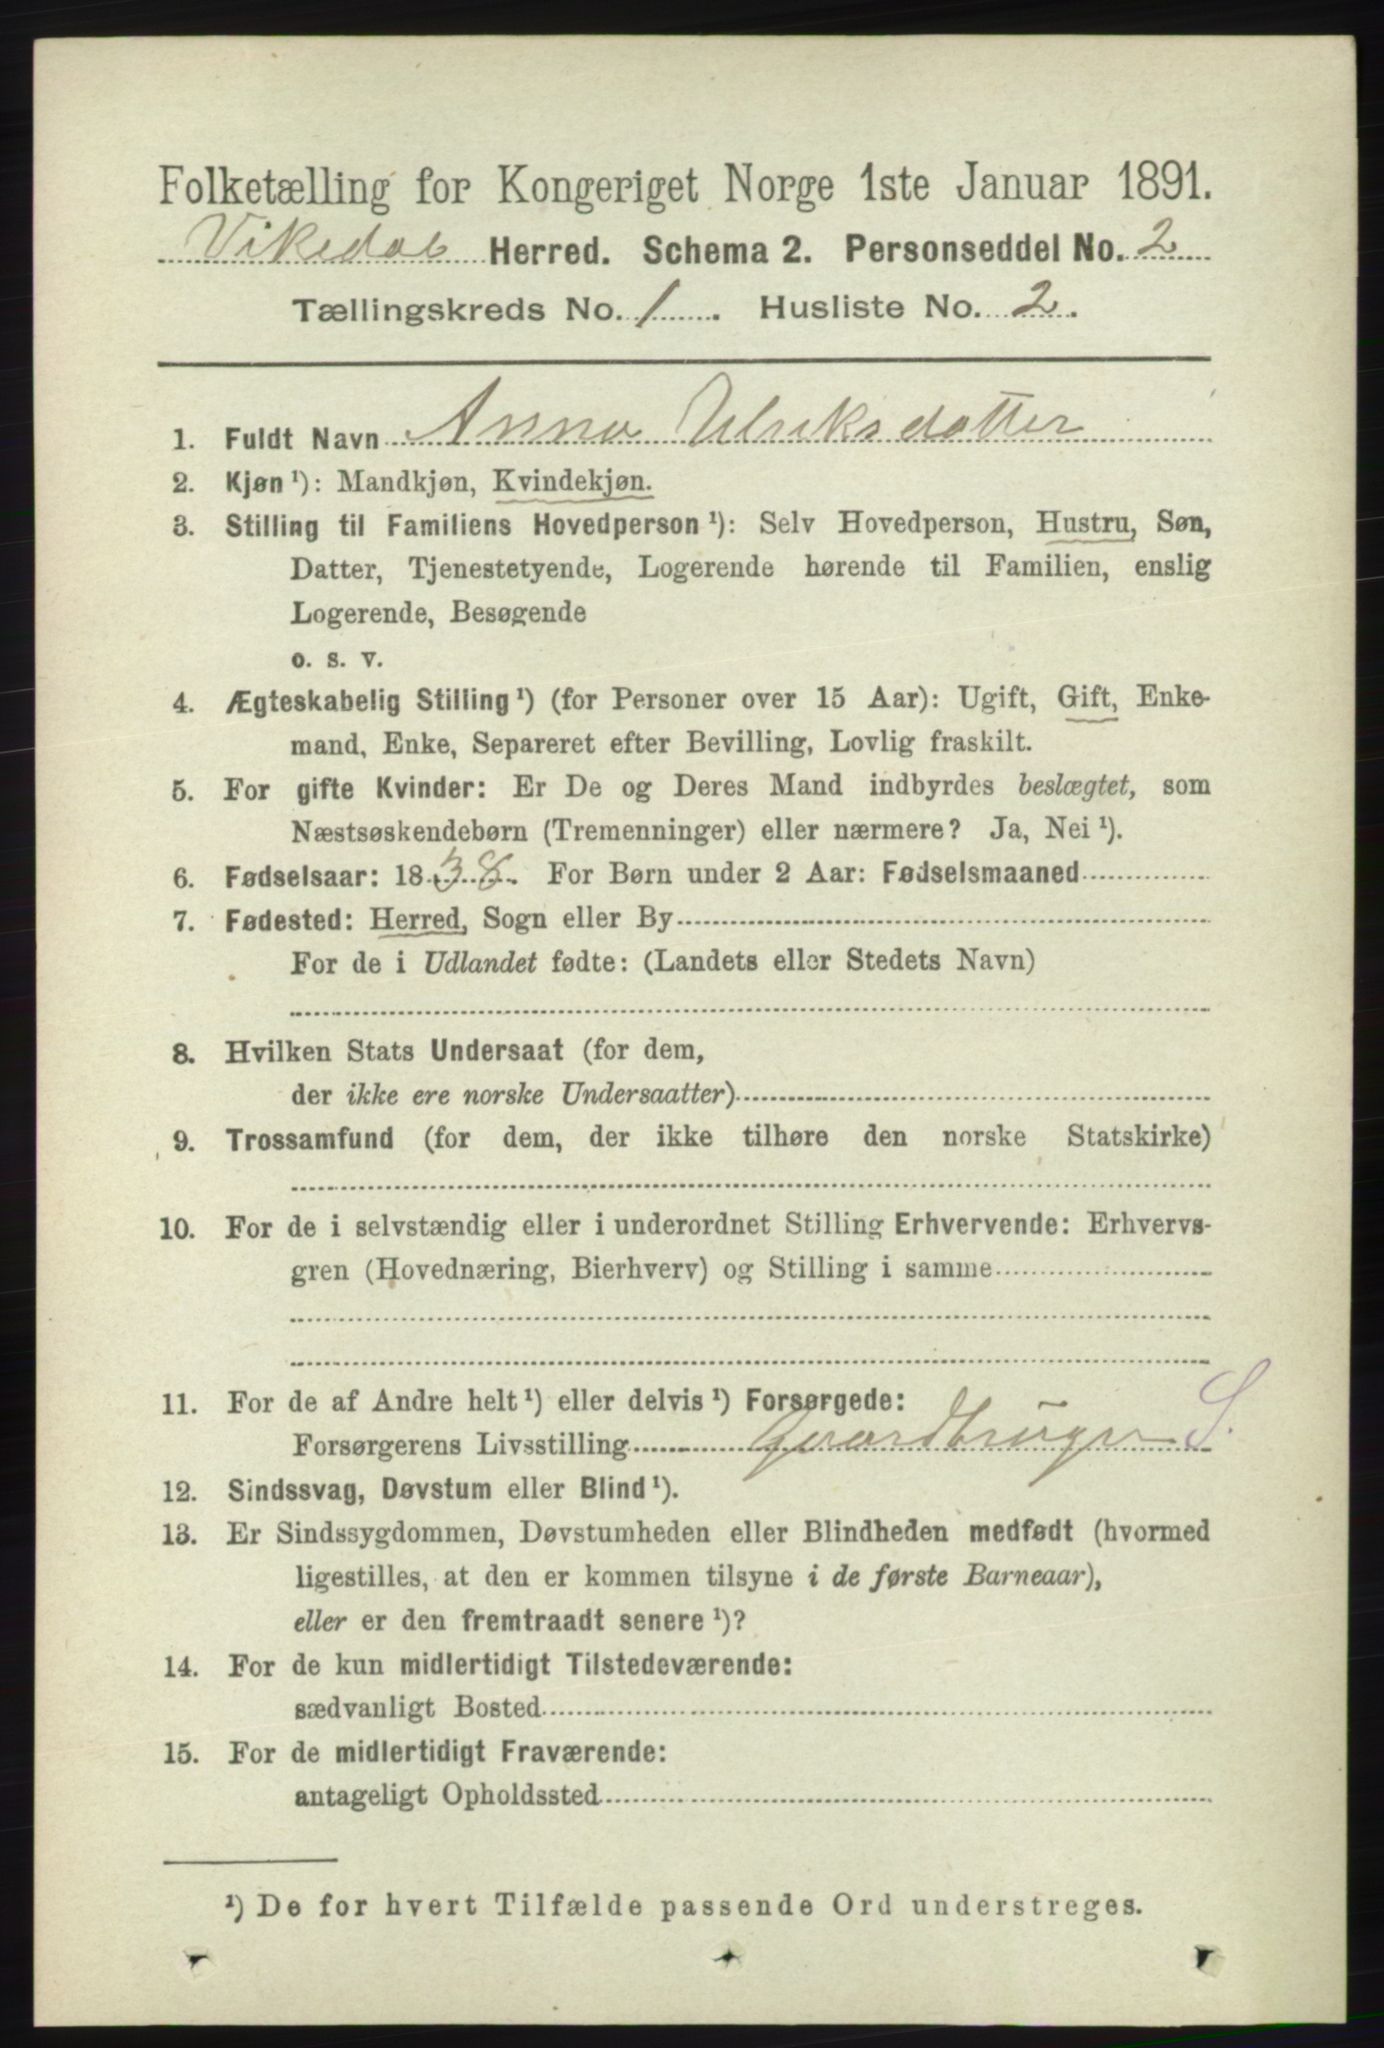 Folketælling for Kongeriget Norge 1ste Januar 1891.
Vikedal Herred. Schema 2. Personseddel No. 2
Tællingskreds No. 1. Husliste No. 2.
1. Fuldt Navn Anna Ulriksdatter
2. Kjøn ¹): Mandkjøn, Kvindekjøn.
3. Stilling til Familiens Hovedperson ¹): Selv Hovedperson, Hustru, Søn,
Datter, Tjenestetyende, Logerende hørende til Familien, enslig
Logerende, Besøgende
o. s. v.
4. Ægteskabelig Stilling ¹) (for Personer over 15 Aar): Ugift, Gift, Enke-
mand, Enke, Separeret efter Bevilling, Lovlig fraskilt.
5. For gifte Kvinder: Er De og Deres Mand indbyrdes beslægtet, som
Næstsøskendebørn (Tremenninger) eller nærmere? Ja, Nei ¹).
6. Fødselsaar: 1838. For Børn under 2 Aar: Fødselsmaaned
7. Fødested: Herred, Sogn eller By
For de i Udlandet fødte: (Landets eller Stedets Navn)
8. Hvilken Stats Undersaat (for dem,
der ikke ere norske Undersaatter)
9. Trossamfund (for dem, der ikke tilhøre den norske Statskirke)
10. For de i selvstændig eller i underordnet Stilling Erhvervende: Erhvervs-
gren (Hovednæring, Bierhverv) og Stilling i samme
11. For de af Andre helt ¹) eller delvis ¹) Forsørgede:
Forsørgerens Livsstilling Gaardbruger S.
12. Sindssvag, Døvstum eller Blind ¹).
13. Er Sindssygdommen, Døvstumheden eller Blindheden medfødt (hvormed
ligestilles, at den er kommen tilsyne i de første Barneaar),
eller er den fremtraadt senere ¹)?
14. For de kun midlertidigt Tilstedeværende:
sædvanligt Bosted
15. For de midlertidigt Fraværende:
antageligt Opholdssted
¹) De for hvert Tilfælde passende Ord understreges.